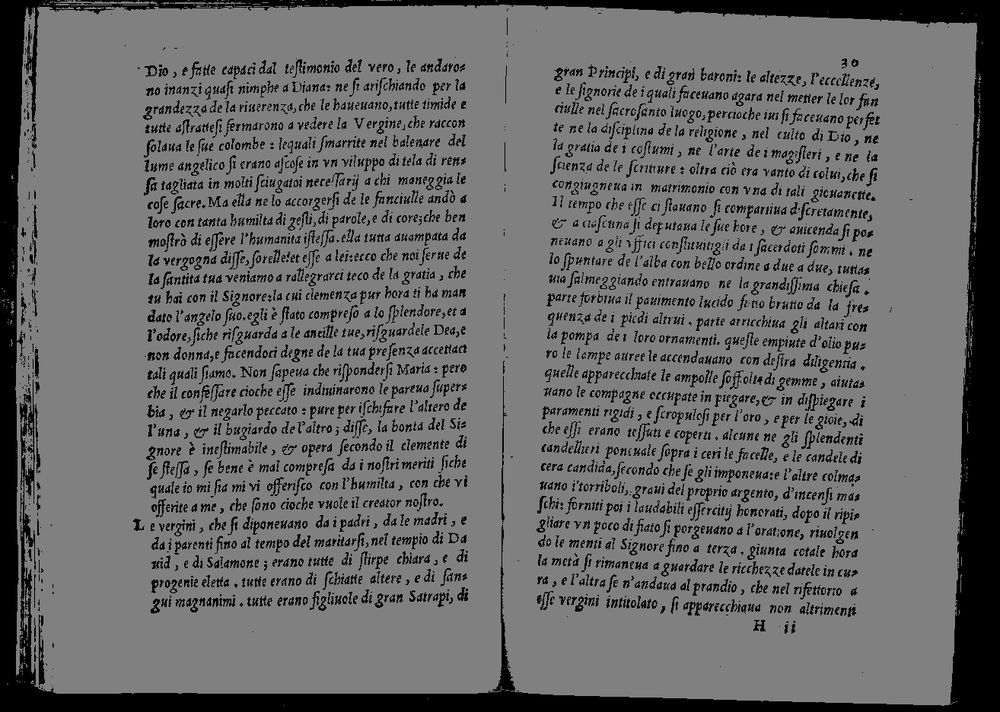 Dio, e fatte capaci dal testimonio del vero, le andaro-
no inanzi quasi nimphe a Diana: ne si arischiando per la
grandezza de la riuerenza, che le haueuano, tutte timide e
tutte astrattesi fermarono a vedere la Vergine, che raccon
solaua le sue colombe: lequali smarrite nel balenare del
lume angelico si erano ascose in vn viluppo di tela di ren-
sa tagliata in molti sciugatoi necessarij a chi maneggia le
cose sacre. Ma ella ne lo accorgersi de le fanciulle andò a
loro con tanta humilta di gesti, di parole, e di core; che ben
mostrò di essere l'humanita istessa. ella tutta auampata da
la vergogna disse, sorelle: et esse a lei: ecco che noi serue de
la santita tua veniamo a rallegrarci teco de la gratia, che
tu hai con il Signore: la cui clemenza pur hora ti ha man
dato l'angelo suo. egli è stato compreso a lo splendore, et a
l'odore, siche risguarda a le ancille tue, risguardele Dea, e
non donna, e facendoci degne de la tua presenza accettaci
tali quali siamo. Non sapeua che rispondersi Maria: pero
che il confessare cioche esse indiuinarono le pareua super-
bia, & il negarlo peccato: pure per ischifare l'altero de
l'una, & il bugiardo de l'altro; disse, la bonta del Si-
gnore è inestimabile, & opera secondo il clemente di
se stessa, se bene è mal compresa da i nostri meriti siche
quale io mi sia mi vi offerisco con l'humilta, con che vi
offerite a me, che sono cioche vuole il creator nostro.
Le vergini, che si diponeuano da i padri, da le madri, e
da i parenti fino al tempo del maritarsi, nel tempio di Da
uid, e di Salamone; erano tutte di stirpe chiara, e di
progenie eletta. tutte erano di schiatte altere, e di san-
gui magnanimi. tutte erano figliuole di gran Satrapi, di
30
gran Principi, e di gran baroni: le altezze, l'eccellenze,
e le signorie de i quali faceuano agara nel metter le lor fan
ciulle nel sacrosanto luogo, percioche iui si faceuano perfet
te ne la disciplina de la religione, nel culto di Dio, ne
la gratia de i costumi, ne l'arte de i magisteri, e ne la
scienza de le scritture: oltra ciò era vanto di colui, che si
congiugneua in matrimonio con vna di tali giouanette.
Il tempo che esse ci stauano si compartiua discretamente,
& a ciascuna si deputaua le sue hore, & auicenda si po-
neuano a gli vffici constituitigli da i sacerdoti sommi. ne
lo spuntare de l'alba con bello ordine a due a due, tutta-
uia salmeggiando entrauano ne la grandissima chiesa.
parte forbiua il pauimento lucido fatto brutto da la fre-
quenza de i piedi altrui. parte arricchiua gli altari con
la pompa de i loro ornamenti. queste empiute d'olio pu-
ro le lampe auree le accendauano con destra diligentia.
quelle apparecchiate le ampolle soffolte di gemme, aiuta-
uano le compagne occupate in piegare, & in dispiegare i
paramenti rigidi, e scropulosi per l'oro, e per le gioie, di
che essi erano tessuti e coperti. alcune ne gli splendenti
candellieri poneuale sopra i ceri le facelle, e le candele di
cera candida, secondo che se gli imponeua: e l'altre colma-
uano i torriboli, graui del proprio argento, d'incensi ma-
schi: forniti poi i laudabili essercitij honorati, dopo il ripi-
gliare vn poco di fiato si porgeuano a l'oratione, riuolgen
do le menti al Signore fino a terza. giunta cotale hora
la metà si rimaneua a guardare le ricchezze datele in cu-
ra, e l'altra se n'andaua al prandio, che nel rifettorio a
esse vergini intitolato, si apparecchiaua non altrimenti
H ii